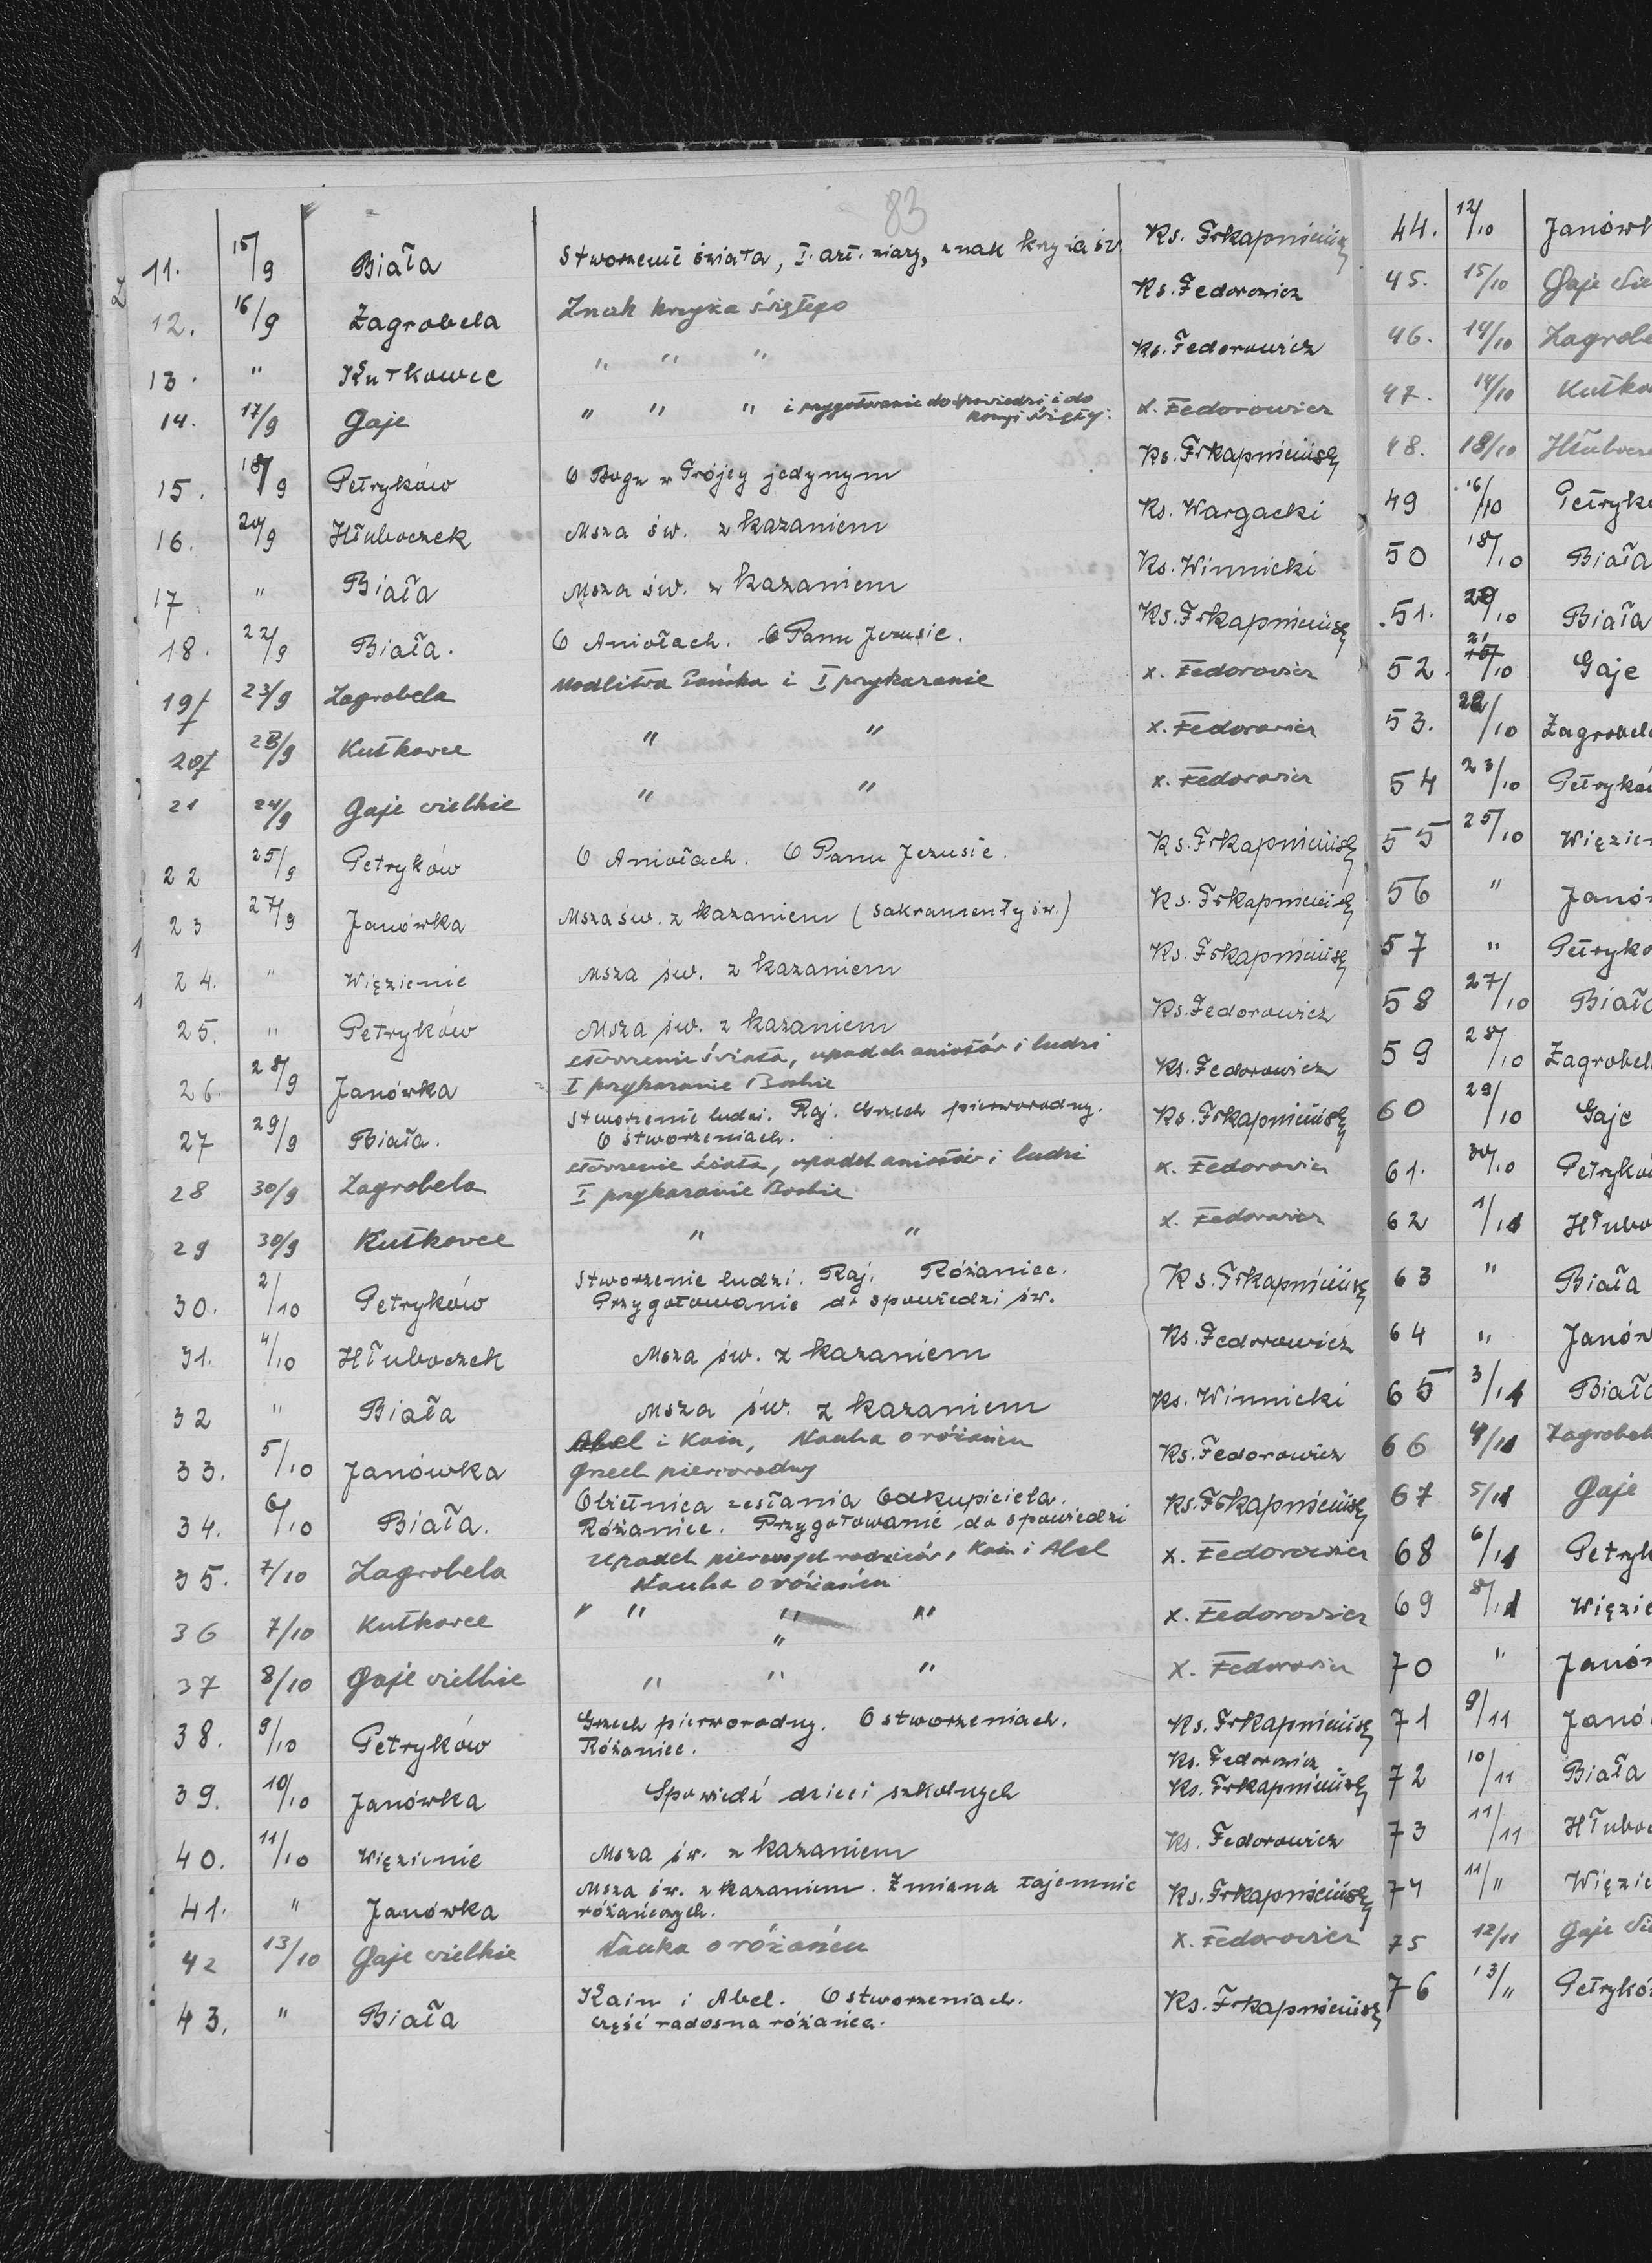 83
11. 15/9 Biała Stworzenie świata, I. art. wiary, znak krzyża św. Ks.
12. 16/9 Zagrobela Znak krzyża świętego Ks. Fedorowicz
13. " Kutkowce " " " Ks. Fedorowicz
14. 17/9 Gaje " " " i przygotowanie do spowiedzi i do
Komuji świętej. X. Fedorowicz
15. 18/9 Petryków O Bogu w Trójcy jedynym Ks.
16. 20/9 Hłuboczek Msza św. z kazaniem Ks. Wargacki
17 " Biała Msza św. z kazaniem Ks. Winnicki
18. 22/9 Biała. O Aniołach. O Panu Jezusie. Ks.
19 23/9 Zagrobela Modlitwa Pańska i I przykazanie X. Fedorowicz
20 23/9 Kutkowce " " X. Fedorowicz
21 24/9 Gaje wielkie " " X. Fedorowicz
22 25/9 Petryków O Aniołach. O Panu Jezusie. Ks.
23 27/9 Janówka Msza św. z kazaniem (Sakramenty św.) Ks.
24. " Więzienie Msza św. z kazaniem Ks.
25. " Petryków Msza św. z kazaniem Ks. Fedorowicz
stworzenie świata, upadek aniołów i ludzi
26. 28/9 Janówka I przykazanie Boskie Ks. Fedorowicz
Stworzenie ludzi. Raj. Grzech pierworodny.
27 29/9 Biała. O stworzeniach. Ks.
stworzenie świata, upadek aniołów i ludzi
28 30/9 Zagrobela I przykazanie Boskie X. Fedorowicz
29 30/9 Kutkowce " " X. Fedorowicz
Stworzenie ludzi. Raj. Różaniec.
30. 2/10 Petryków Przygotowanie do spowiedzi św. Ks.
31. 4/10 Hłuboczek Msza św. z kazaniem Ks. Fedorowicz
32 " Biała Msza św. z kazaniem Ks. Winnicki
Abel i Kain, Nauka o różańcu
33. 5/10 Janówka Grzech pierworodny Ks. Fedorowicz
Obietnica zesłania Odkupiciela.
34. 6/10 Biała. Różaniec. Przygotowanie do spowiedzi Ks.
Upadek pierwszych rodziców, Kain i Abel
35. 7/10 Zagrobela Nauka o różańcu X. Fedorowicz
36 7/10 Kutkowce " " " " X. Fedorowicz
"
37 8/10 Gaje wielkie " " " X. Fedorowicz
Grzech pierworodny. O stworzeniach.
38. 9/10 Petryków Różaniec. Ks.
Ks. Fedorowicz
39. 10/10 Janówka Spowiedź dzieci szkolnych Ks.
40. 11/10 Więzienie Msza św. z kazaniem Ks. Fedorowicz
Msza św. z kazaniem. Zmiana tajemnic
41. " Janówka różańcowych. Ks.
42 13/10 Gaje wielkie Nauka o różańcu X. Fedorowicz
Kain i Abel. O stworzeniach.
43. " Biała część radosna różańca. Ks.
44. 12/10 Janówk
45. 15/10 Gaje
46. 14/10 Zagrobe
47. 14/10 Kutko
48. 18/10 Hłubocz
49 16/10 Petryk
50 18/10 Biała
51. /10 Biała
52. 21/10 Gaje
53. /10 Zagrobel
54 23/10 Petryków
55 25/10 Więzien
56 " Janów
57 " Petryko
58 27/10 Biała
59 28/10 Zagrobel
60 29/10 Gaje
61. 30/10 Petryków
62 1/11 Hłubo
63 " Biała
64 " Janów
65 3/11 Biała
66 4/11 Zagrobel
67 5/11 Gaje
68 6/11 Petryk
69 8/11 Więzie
70 " Janów
71 9/11 Janó
72 10/11 Biała
73 11/11 Hłuboc
74 11/" Więzie
75 12/11 Gaje
76 13/" Petrykó